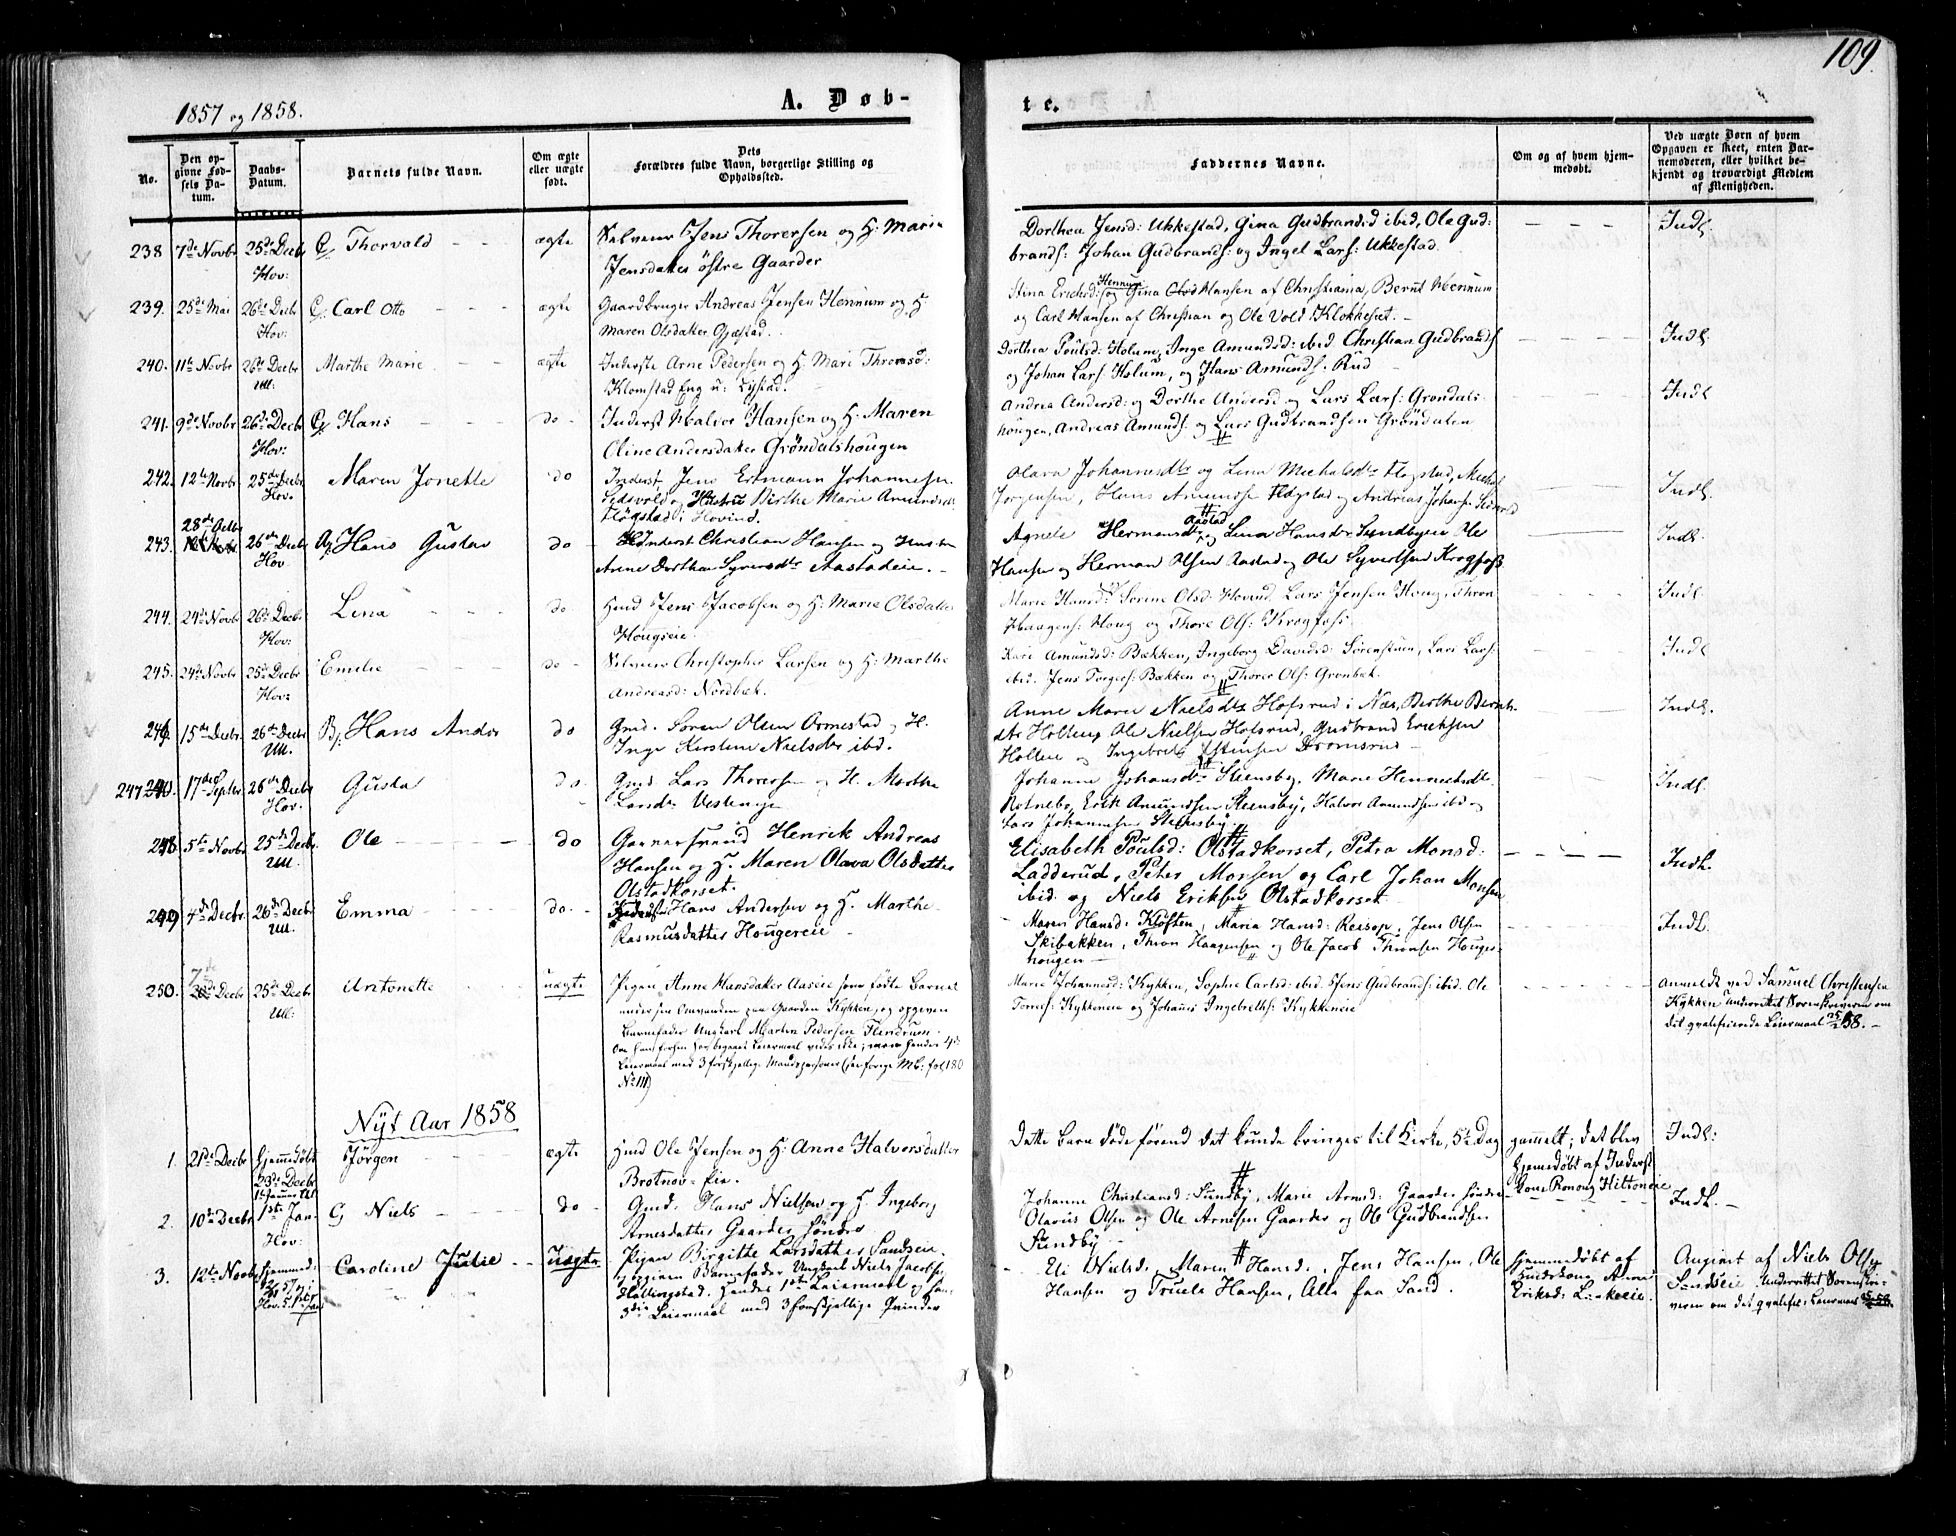 109.
1857 og 1858.
A. Døb-
te.
No.
Den op-
givne Fød-
sels Da-
tum.
Daabs-
Datum.
Barnets fulde Navn.
Om ægte
eller uægte
født.
Dets
Forældres fulde Navn, borgerlige Stilling og
Opholdssted.
Faddernes Navne.
Om og af hvem hjem-
medøbt.
Ved uægte Børn af hvem
Opgaven er skeet, enten Bar-
nemoderen, eller hvilket be-
kjendt og troværdigt Medlem
af Menigheden.
238 7de Novbr 25de Decbr Thorvald ægte Selveier Jens Thorersen og H: Marie
Hov: Jensdatter østre Gaarder
Dorthea Jensd: Ukkestad, Gina Gudbrandsd ibid, Ole Gud- Indl.
brands: Johan Gudbrands: og Inget Lars: Ukkestad.
239. 25de Mai 26de Decbr Carl Otto ægte Gaardbruger Andreas Jensen Hennum og H:
Hov. Maren Olsdatter Gjæstad.
Stina Ericksd: Hennum og Gina Mansen af Christiania, Bernt Hennum
og Carl Hansen af Christian og Ole Vold Klokkeset.
240. 11te Novbr 26de Decbr Marthe Marie ægte Inderste Arne Pedersen og H: Mari Thomasd:
Ull. Klomstad Eng u: Lystad.
Dorthea Poulsd: Holum, Inge Amundsd: ibid Christian Gudbrands Indl.
og Johan Lars: Holum, og Hans Amunds: Rud
241. 9de Novbr 26de Decbr Hans do Inderst Halvor Hansen og H. Maren
Hov: Oline Andersdatter Grøndalshougen
Andrea Andersd: og Dorthe Andersd og Lars Lars: Grøndals- Indl
hougen, Andreas Amunds: og Lars Gudbrandsen Grøndalen
242. 12te Novbr 25de Decbr Maren Jonette do Inderst Jens Ertmann Johannesen
Hov. Eidsvold og Hustru Birthe Marie Amundsdtr
Høgstad i Hovind.
Olava Johannesdtr og Lina Michalsdtr Høgstad, Michel Indl.
Jørgensen, Hans Amundse Høgstad og Andreas Johans: Eidsvold
28de Octbr
243. 26de Decbr Hans Gustav do Inderst Christian Hansen og Hustru
Hov Anne Dorthea Syversdtr Aastadeie.
Agnete Hermansdtr Aastad og Lina Hansdtr Sundbyeie Ole Indl.
Hansen og Herman Olsen Aastad og Ole Syvertsen Krogfoss
244. 24de Novbr 26de Decbr Lina do Hmd Jens Jacobsen og H: Marie Olsdatter
Hov: Hougseie.
Marie Hansd: Sørine Olsd Hovind, Lars Jensen Houg, Thron Indl.
Haagens: Houg og Thore Ols: Krogfoss.
245. 24de Novbr 25de Decbr Emilie do Selveier Christopher Larsen og H: Marthe
Hov: Andreasd: Nordbæk.
Kari Amundsd: Bækken, Ingeborg Davidsd: Sørenstuen, Lars Lars: Indl.
ibid. Jens Torgers: Bækken og Thorer Ols: Grønbæk.
246. 15de Decbr. 26de Decbr Hans Anders do Gmd. Søren Olsen Ormestad og H.
Ull. Inge Kirstine Nielsdtr ibd.
Anne Marie Nielsdtr Hofsrud i Næs, Berthe Bernt- Indl.
dtr Holteie Ole Nielsen Hofsrud, Gudbrand Ericksen
Holteie og Ingebret Estensen Dromsrud
247 17de Septbr 26de Decbr Gusta do Gmd Lars Thorersen og H. Marthe
Hov. Larsdtr Vesteneie
Johanne Johansdtr Steensby, Marie Henrechsdtr Indl.
Rotnebo, Erik Amundsen Steensby, Halvor Amundsen ibid og
Lars Johannesen Steensby.
248 5te Novbr 25de Decbr. Ole do Garversvend Henrik Andreas
Ull. Hansen og H Maren Olava Olsdatter
Olstadkorset.
Elisabeth Poulsd: Olstadkorset, Petra Monsd: Indl.
Ladderud, Peter Monsen og Carl Johan Monsen
ibid. og Niels Eriksen Olstadkorset
249 4de Decbr. 26de Decbr Emma do. Inderst Hans Andersen og H. Marthe
Ull. Rasmusdatter Hougereie
Maren Hansd: Kløften, Maria Hansd: Reisop, Jens Olsen Indl.
Skibakken, Thron Haagensen og Ole Jacob Thronsen Houges-
hougen
7de
250. Decbr 25de Decbr Antonette uægte Pigen Anne Hansdatter Aaseie som fødte Barnet
Ull: under sin Omvanden paa Gaarden Kykken, og opgiven
Barnefader Ungkarl Martin Pedersen Flendrum.
Om han forhen har begaaet Leiermaal vides ikke; men hendes 4de
Leiermaal med 3 forskjellige Mandspersoner (see forrige MB: fol 180
No 111)
Marie Johannesd: Kykken, Sophie Carlsd: ibid. Jens Gudbrands: ibid. Ole
Torres: Kykkeneie og Johanes Ingebreths: Kykkeneie
Anmeldt ved Samuel Christensen
Kykken Underrettet Sorenskriveren om
det qvalificerede Leiermaal 58.
Nyt Aar 1858
1. 21de Decbr Hjemmedøbt Jørgen ægte Hmd Ole Jensen og H: Anne Halvorsdatter
23de Decbr Brotnov-Eie.
Dette Barn døde førend det kunde bringes til Kirke, 5te Dag gammelt; det blev Indl:
hjemmedøbt af Inderst
Kone Ronoug Hiltoneie
2. 10de Decbr 1ste Jan. Niels do Gmd. Hans Nielsen og H. Ingeborg
Hov: Arnesdatter Gaarder søndre
Johanne Christiansd: Sundby, Marie Arnesd: Gaarder søndre Indl.
Olavus Olsen og Ole Arnesen Gaarder og Ole Gudbrandsen
Sundby
3. 12te Novbr Hjemmed. Caroline Julie uægte Pigen Birgitte Larsdatter Sandseie.
57 opgiven Barnefader Ungkarl Niels Jacobsen
Hov. Hillingstad. Hendes 1ste Leiermaal og hans
3die Leiermaal med 3 forskjellige Qvinder
Eli Nielsd:, Maren Hansd:, Jens Hansen, Ole
Hansen og Truels Hansen, Alle fra Sand.
hjemmedøbt af
Huuskone Anne
Eriksd:
Angivet af Niels Olsen
Sandseie Underrettet Sorenskri-
veren om det qvalific: Leiermaal 58.